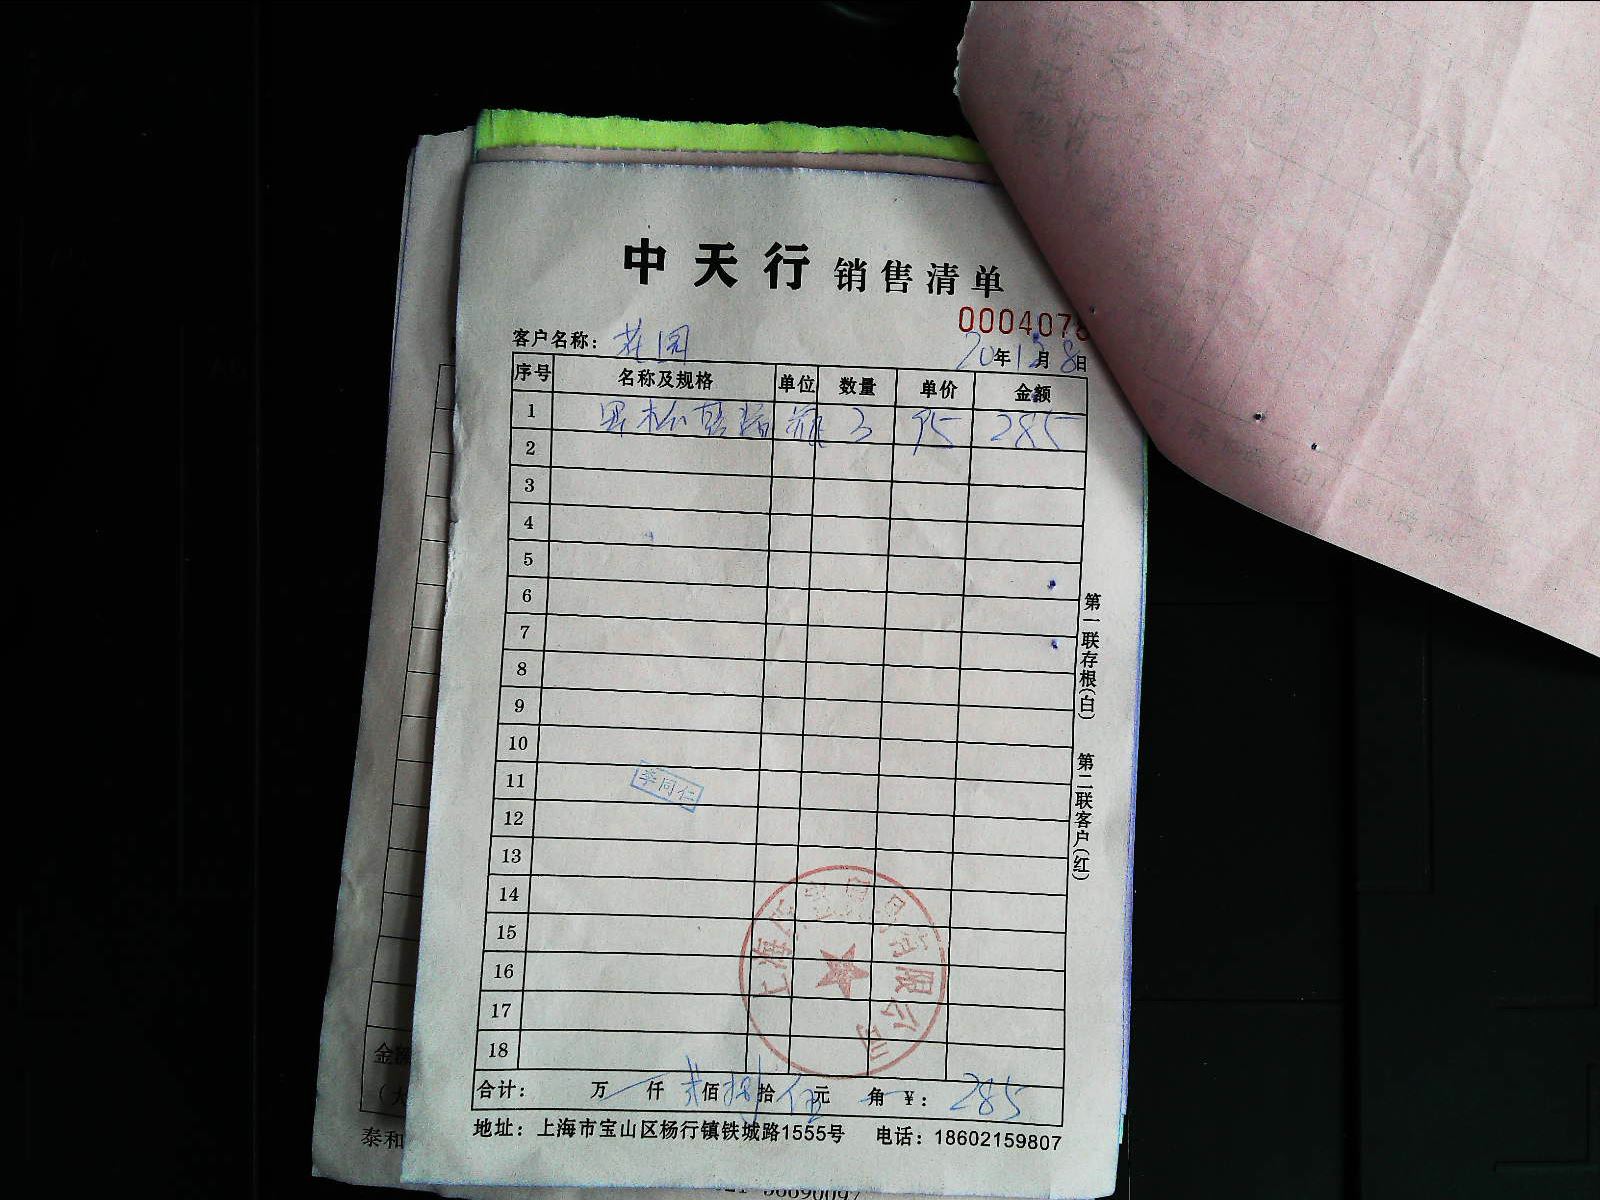 中天行 销售清单
000407
客户名称: 花园
20年12月8日
序号 名称及规格 单位 数量 单价 金额
1 黑松 瓶 3 95 285
2
3
4
5
6
7
8
9
10
11
12
13
14
15
16
17
18
李同仁
上海 有限公司
合计: 万 仟 贰佰捌拾伍元 角 ¥: 285
地址: 上海市宝山区杨行镇铁城路1555号 电话: 18602159807
第一联存根(白) 第二联客户(红)
金额
(大
泰和